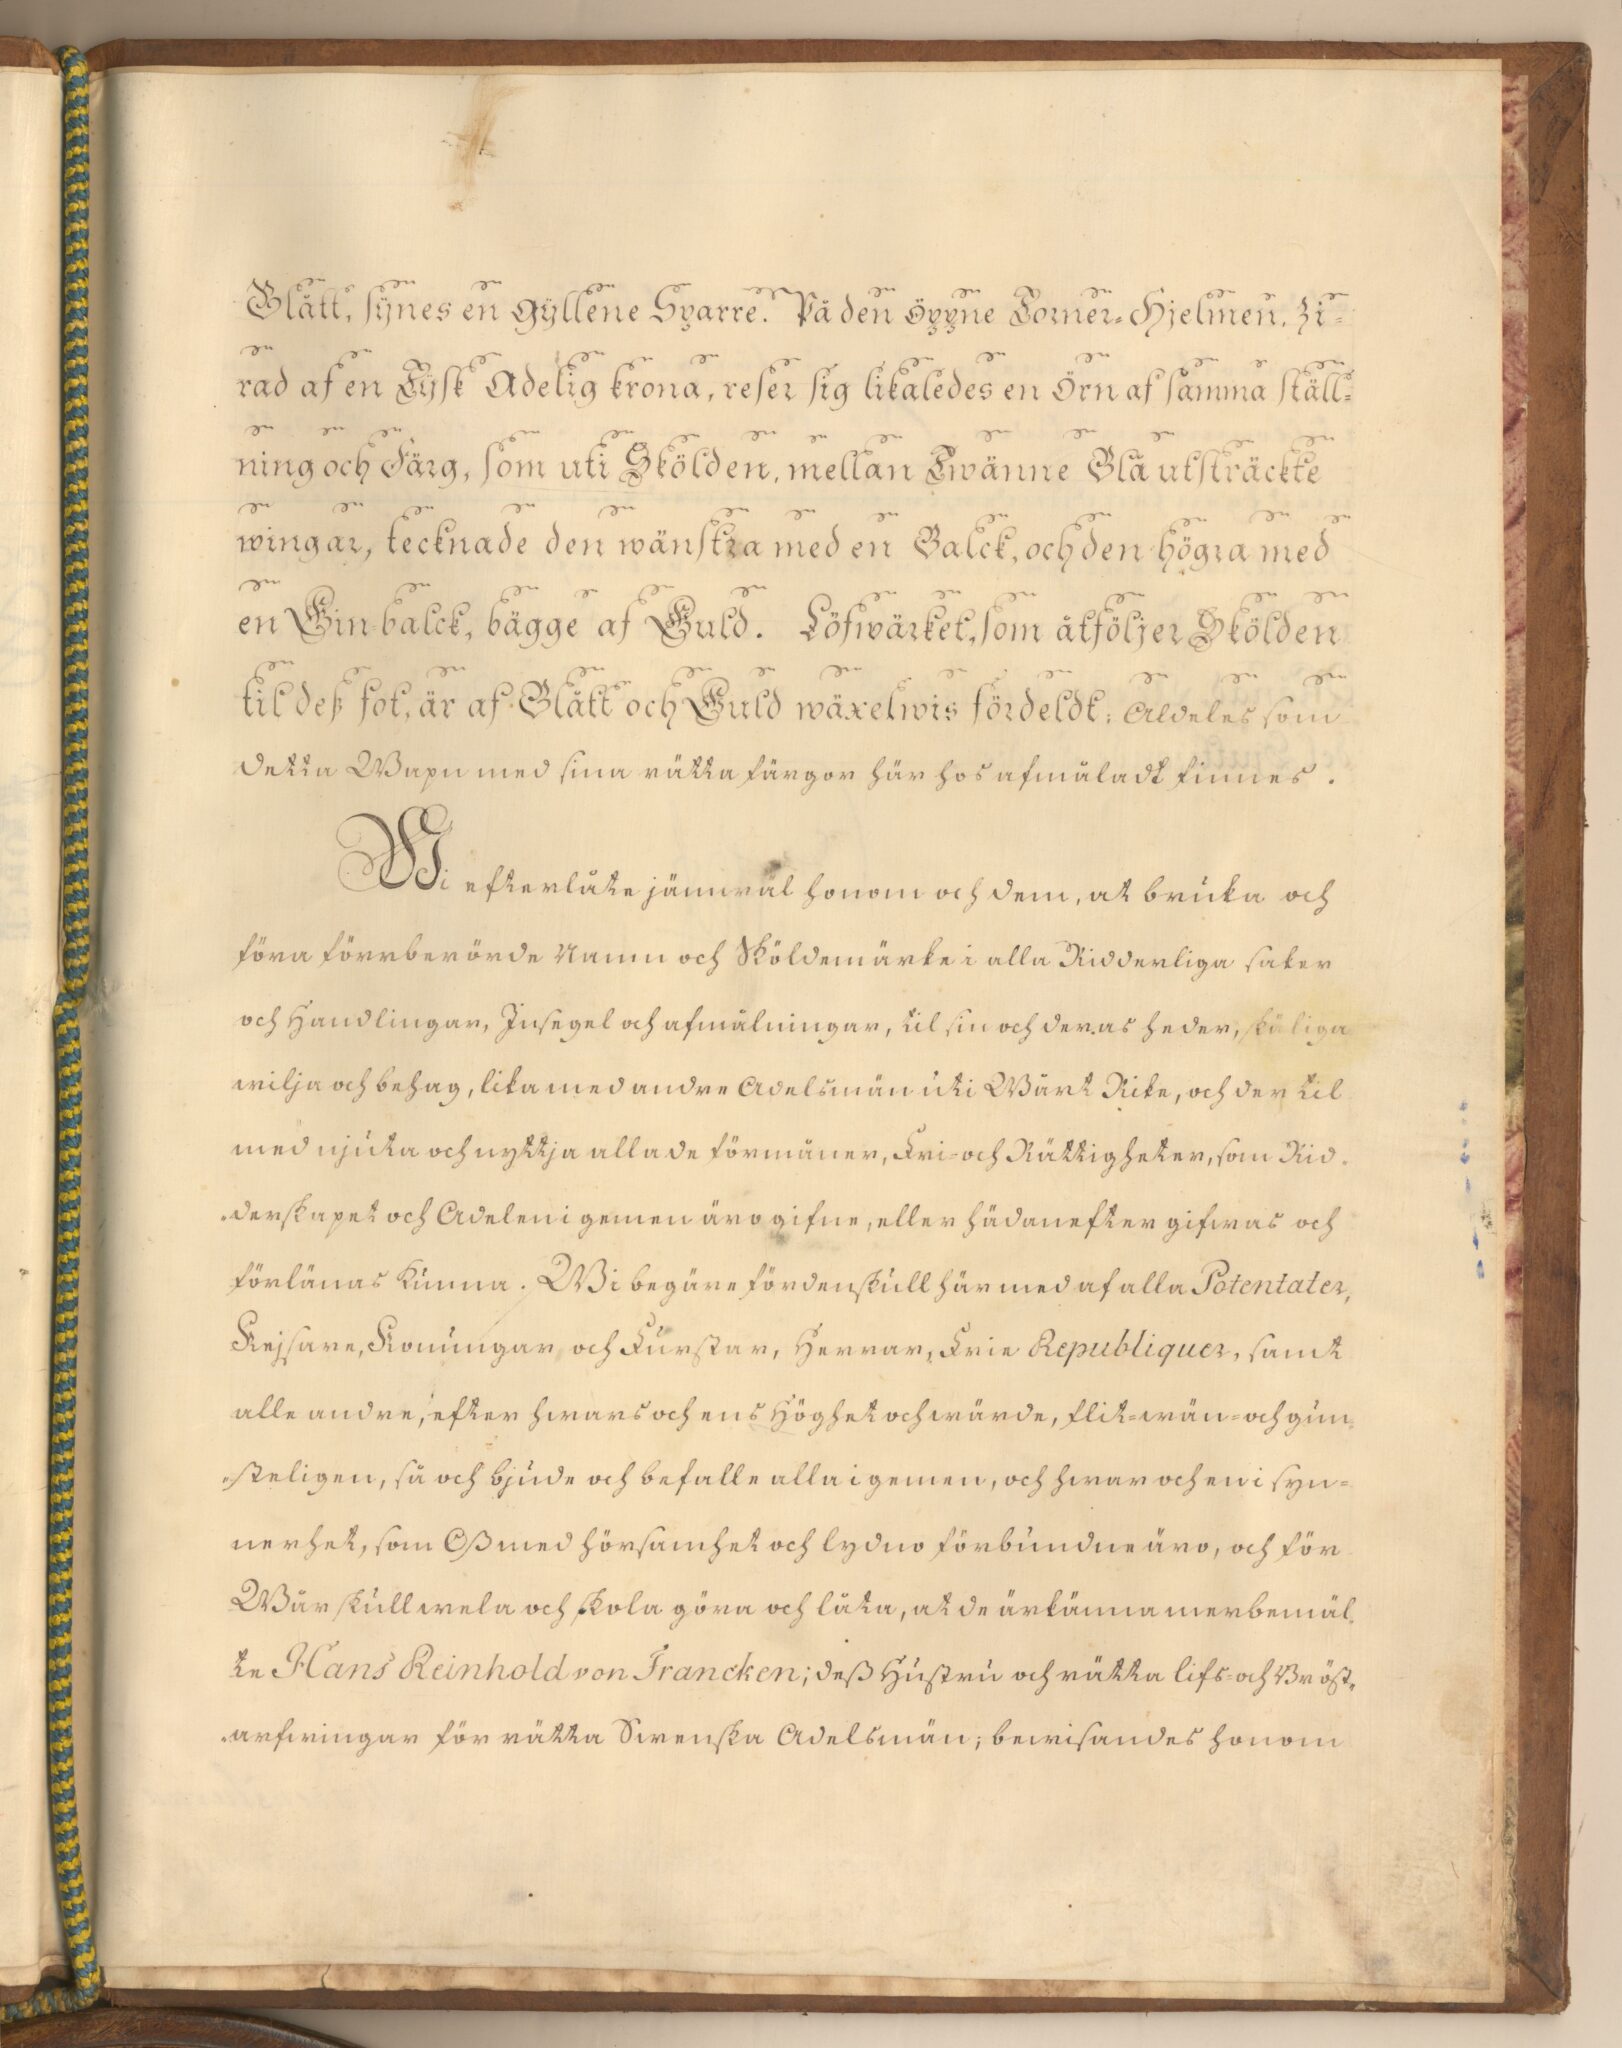 Blått, synes en gyllene Sparre. På den öppne Torner-Hjelmen, zi-
rad af en Tysk Adelig krona, reser sig likaledes en Örn af samma ställ-
ning och Färg, som uti Skölden, mellan Twänne Blå utsträckte
wingar, tecknade den wänstra med en Balck, och den högra med
en Ginbalck, bägge af Guld. Löfwärket, som åtföljer Skölden
til deß fot, är af Blått och Guld wäxelwis fördeldt; Aldeles som
detta Wapn med sina rätta färgor här hos afmåladt finnes.
Wi efterlåte jämwäl honom och dem, at bruka och
föra förrberörde Namn och Sköldemärke i alla Ridderliga saker
och Handlingar, Insegel och afmålningar, til sin och deras heder, skäliga
wilja och behag, lika med andre Adelsmän uti Wårt Rike, och der til
med njuta och nyttja alla de förmåner, Fri- och Rättigheter, som Rid-
derskapet och Adelen i gemen äro gifne, eller hädanefter gifwas och
förlänas kunna. Wi begäre fördenskull härmed af alla Potentater,
Kejsare, Konungar och Furstar, Herrar, Frie Republiquer, samt
alle andre, efter hwars och ens Höghet och wärde, flit- wän- och gun-
steligen, så och bjude och befalle alla i gemen, och hwar och en i syn-
nerhet, som Oß med hörsamhet och lydno förbundne äro, och för
Wår skull wela och skola göra och låta, at de ärkänna merbemäl-
te Hans Reinhold von Francken; deß Hustru och rätta lifs- och Bröst-
arfwingar för rätta Swenska Adelsmän; bewisandes honom